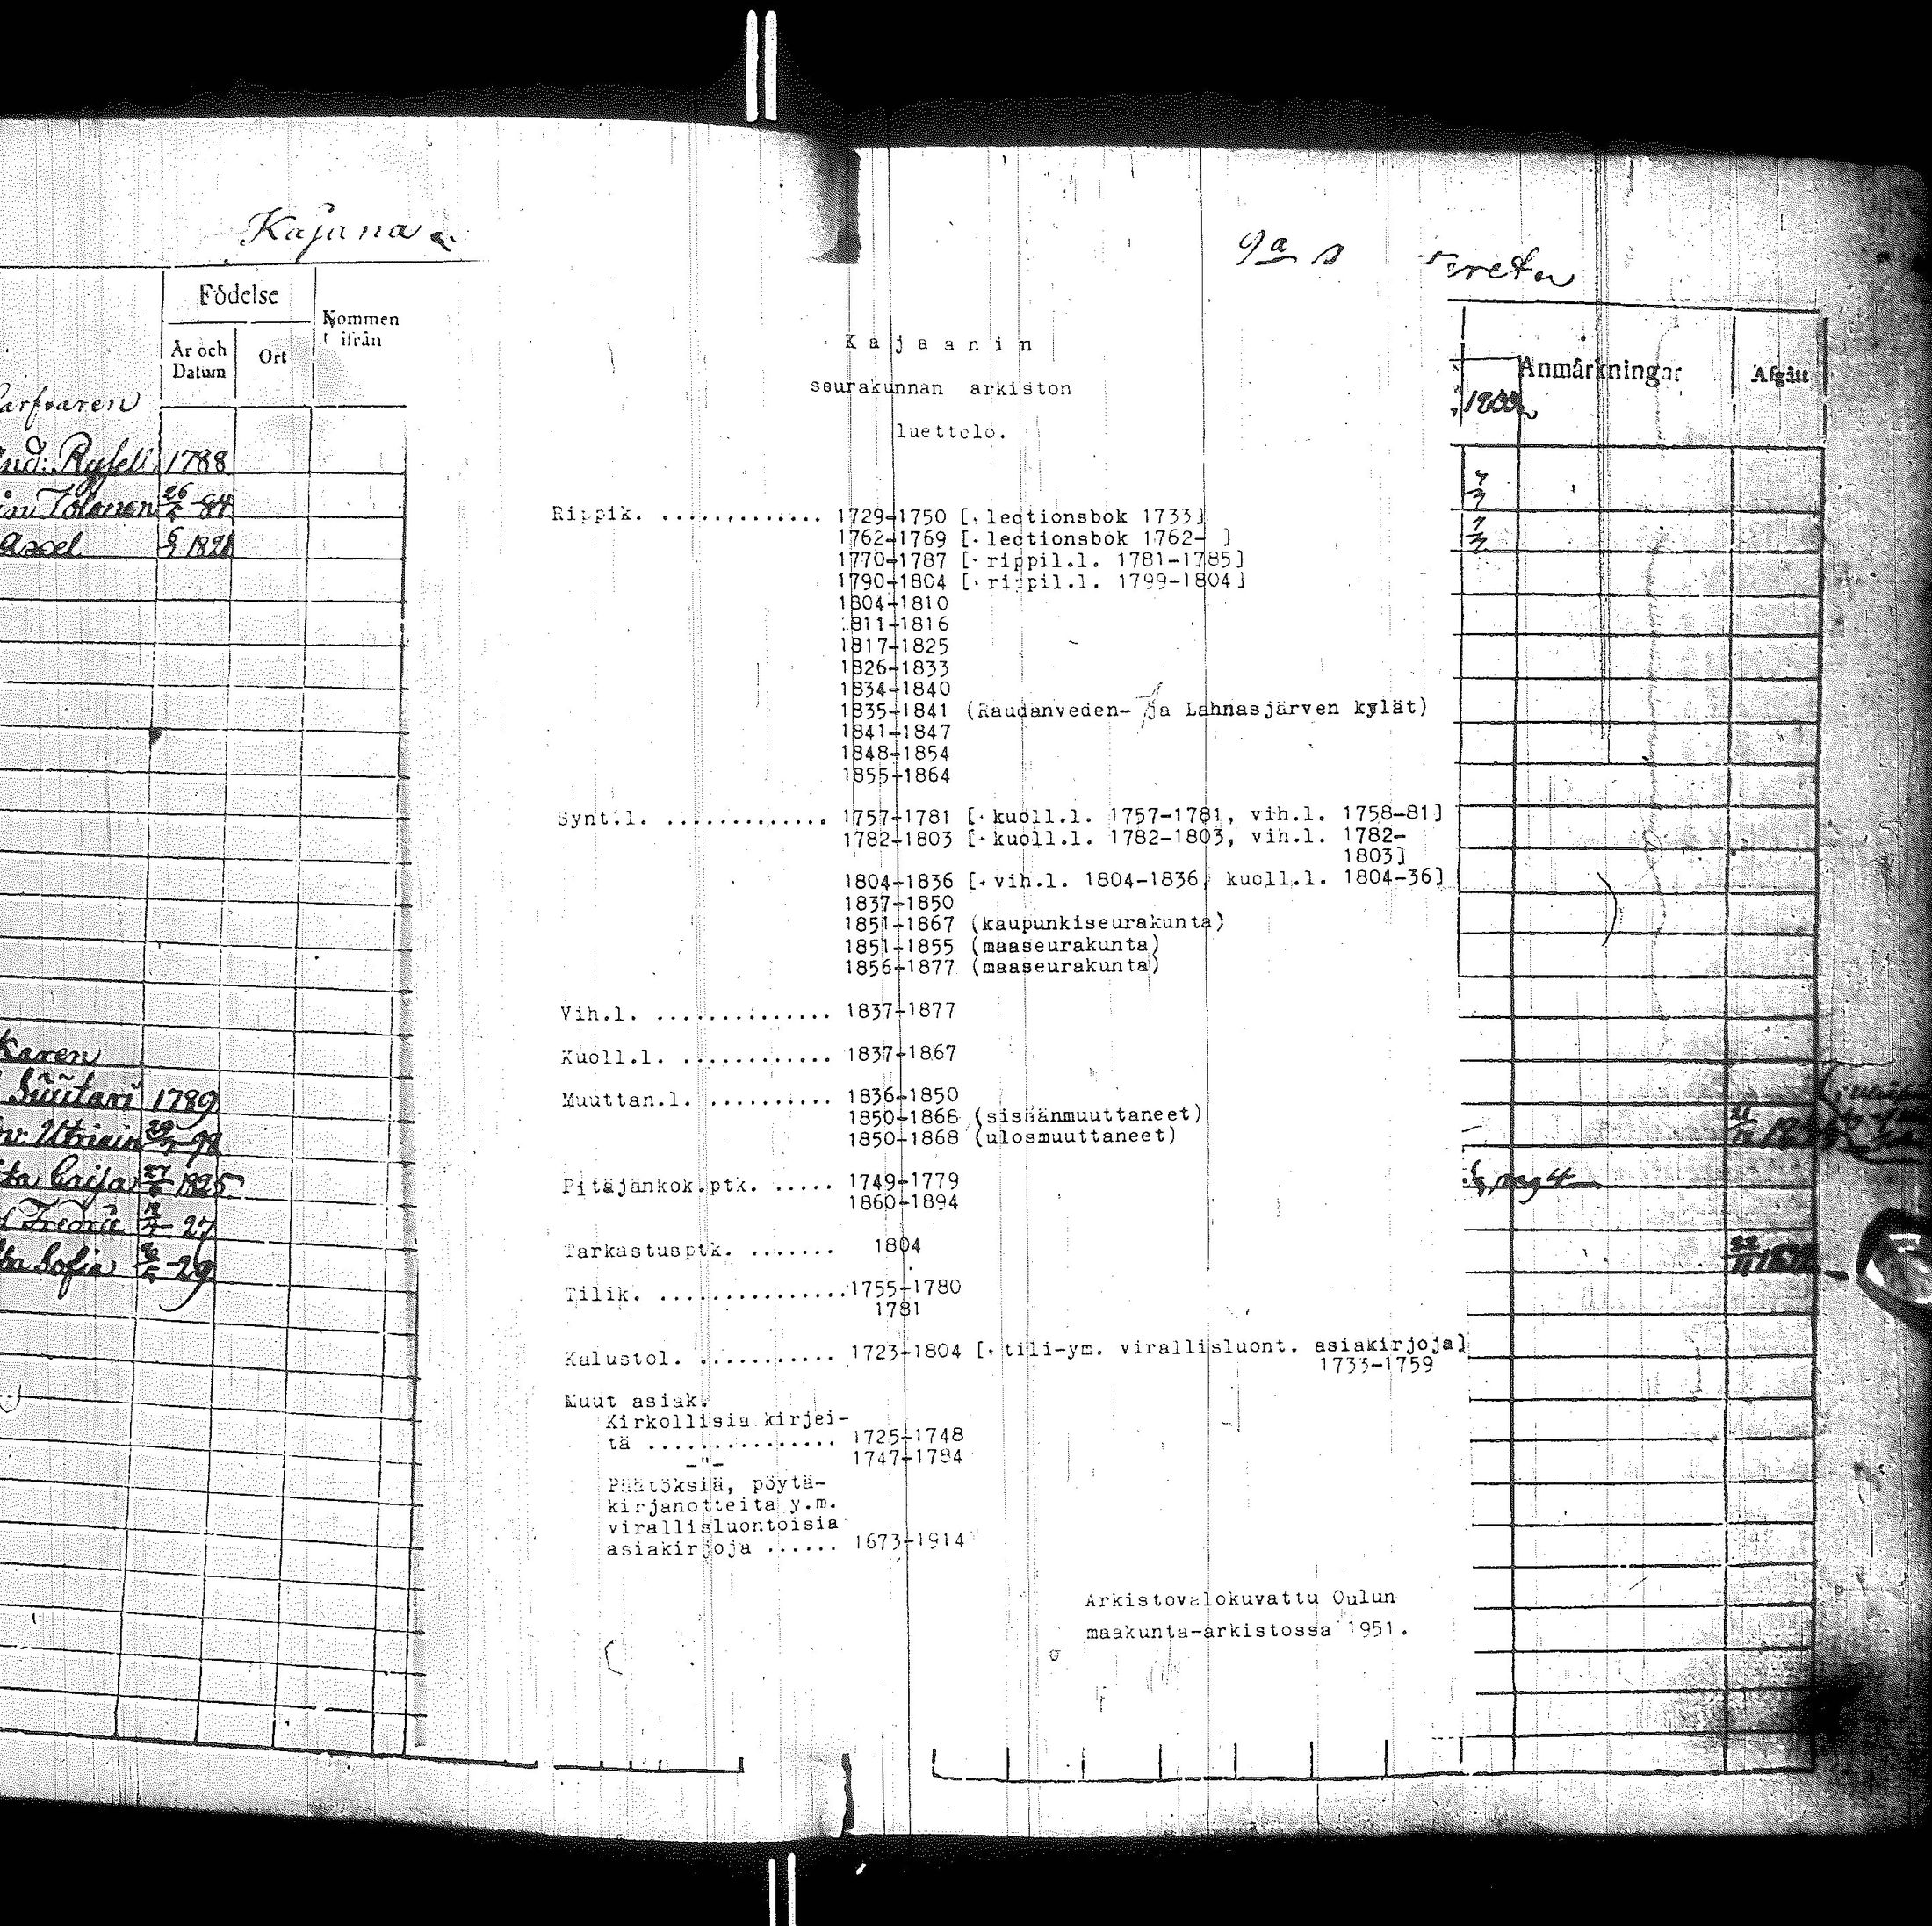 Kajana
9a
Födelse
Kommen ifrån
År och Datum
Ort
1788
Tolonen 26 -84
1821
Karen
Süütari 1789
29 -98
Caisa 27/6 1825
Fredric -27
Sofia -29
Kajaanin
seurakunnan arkiston
luettelo.
Rippik. ............. 1729-1750 [+ lectionsbok 1733]
1762-1769 [+ lectionsbok 1762- ]
1770-1787 [+ rippil.l. 1781-1785]
1790-1804 [+ rippil.l. 1799-1804]
1804-1810
1811-1816
1817-1825
1826-1833
1834-1840
1835-1841 (Raudanveden- ja Lahnasjärven kylät)
1841-1847
1848-1854
1855-1864
Synt.l. ............. 1757-1781 [+ kuoll.l. 1757-1781, vih.l. 1758-81]
1782-1803 [+ kuoll.l. 1782-1803, vih.l. 1782-
1803]
1804-1836 [+ vih.l. 1804-1836, kuoll.l. 1804-36]
1837-1850
1851-1867 (kaupunkiseurakunta)
1851-1855 (maaseurakunta)
1856-1877 (maaseurakunta)
Vih.l. .............. 1837-1877
Kuoll.l. ............ 1837-1867
Muuttan.l. .......... 1836-1850
1850-1866 (sisäänmuuttaneet)
1850-1868 (ulosmuuttaneet)
Pitäjänkok.ptk. ..... 1749-1779
1860-1894
Tarkastusptk. ....... 1804
Tilik. ...............1755-1780
1781
Kalustol. ........... 1723-1804 [+ tili-ym. virallisluont. asiakirjoja]
1733-1759
Muut asiak.
Kirkollisia kirjei-
tä ............... 1725-1748
-"- 1747-1794
Päätöksiä, pöytä-
kirjanotteita y.m.
virallisluontoisia
asiakirjoja ...... 1673-1914
Arkistovalokuvattu Oulun
maakunta-arkistossa 1951.
Anmärkningar
Afgått
pag 4